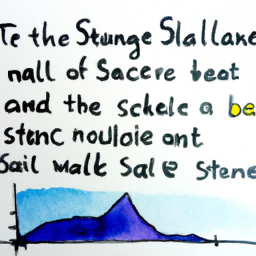 Te the Stunge Slallane
nall of Sacere beot
and the sckele a be
stnc noulole ant
Sail walk Sale Stene